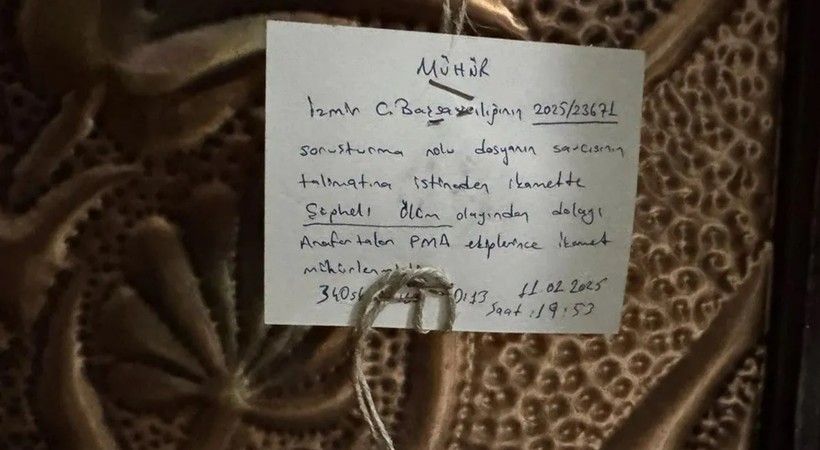 MÜHÜR
İzmir C.Başsavcılığının 2025/23671
soruşturma nolu dosyanın savcısının
talimatına istinaden ikamette
Şüpheli Ölüm olayından dolayı
Anafartalar PMA ekiplerince ikamet
11.02.2025
Saat :19:53